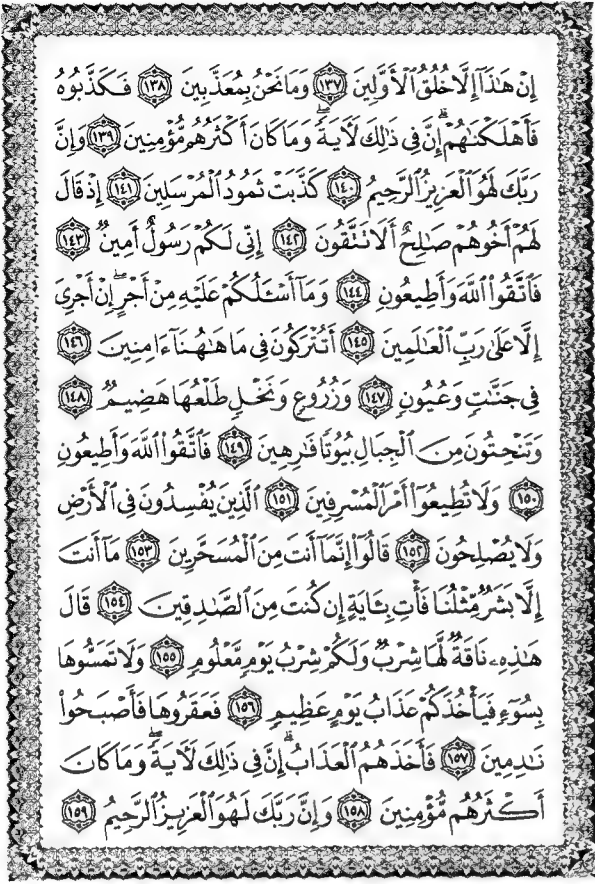 إِنْ هَٰذَآ إِلَّا خُلُقُ ٱلْأَوَّلِينَ ١٣٧ وَمَا نَحْنُ بِمُعَذَّبِينَ ١٣٨ فَكَذَّبُوهُ
فَأَهْلَكْنَٰهُمْ ۗ إِنَّ فِى ذَٰلِكَ لَأٓيَةً ۖ وَمَا كَانَ أَكْثَرُهُم مُّؤْمِنِينَ ١٣٩ وَإِنَّ
رَبَّكَ لَهُوَ ٱلْعَزِيزُ ٱلرَّحِيمُ ١٤٠ كَذَّبَتْ ثَمُودُ ٱلْمُرْسَلِينَ ١٤١ إِذْ قَالَ
لَهُمْ أَخُوهُمْ صَٰلِحٌ أَلَا تَتَّقُونَ ١٤٢ إِنِّى لَكُمْ رَسُولٌ أَمِينٌ ١٤٣
فَٱتَّقُوا۟ ٱللَّهَ وَأَطِيعُونِ ١٤٤ وَمَآ أَسْـَٔلُكُمْ عَلَيْهِ مِنْ أَجْرٍ ۖ إِنْ أَجْرِىَ
إِلَّا عَلَىٰ رَبِّ ٱلْعَٰلَمِينَ ١٤٥ أَتُتْرَكُونَ فِى مَا هَٰهُنَآ ءَامِنِينَ ١٤٦
فِى جَنَّٰتٍ وَعُيُونٍ ١٤٧ وَزُرُوعٍ وَنَخْلٍ طَلْعُهَا هَضِيمٌ ١٤٨
وَتَنْحِتُونَ مِنَ ٱلْجِبَالِ بُيُوتًا فَٰرِهِينَ ١٤٩ فَٱتَّقُوا۟ ٱللَّهَ وَأَطِيعُونِ
١٥٠ وَلَا تُطِيعُوٓا۟ أَمْرَ ٱلْمُسْرِفِينَ ١٥١ ٱلَّذِينَ يُفْسِدُونَ فِى ٱلْأَرْضِ
وَلَا يُصْلِحُونَ ١٥٢ قَالُوٓا۟ إِنَّمَآ أَنتَ مِنَ ٱلْمُسَحَّرِينَ ١٥٣ مَآ أَنتَ
إِلَّا بَشَرٌ مِّثْلُنَا فَأْتِ بِـَٔايَةٍ إِن كُنتَ مِنَ ٱلصَّٰدِقِينَ ١٥٤ قَالَ
هَٰذِهِۦ نَاقَةٌ لَّهَا شِرْبٌ وَلَكُمْ شِرْبُ يَوْمٍ مَّعْلُومٍ ١٥٥ وَلَا تَمَسُّوهَا
بِسُوٓءٍ فَيَأْخُذَكُمْ عَذَابُ يَوْمٍ عَظِيمٍ ١٥٦ فَعَقَرُوهَا فَأَصْبَحُوا۟
نَٰدِمِينَ ١٥٧ فَأَخَذَهُمُ ٱلْعَذَابُ ۗ إِنَّ فِى ذَٰلِكَ لَأٓيَةً ۖ وَمَا كَانَ
أَكْثَرُهُم مُّؤْمِنِينَ ١٥٨ وَإِنَّ رَبَّكَ لَهُوَ ٱلْعَزِيزُ ٱلرَّحِيمُ ١٥٩